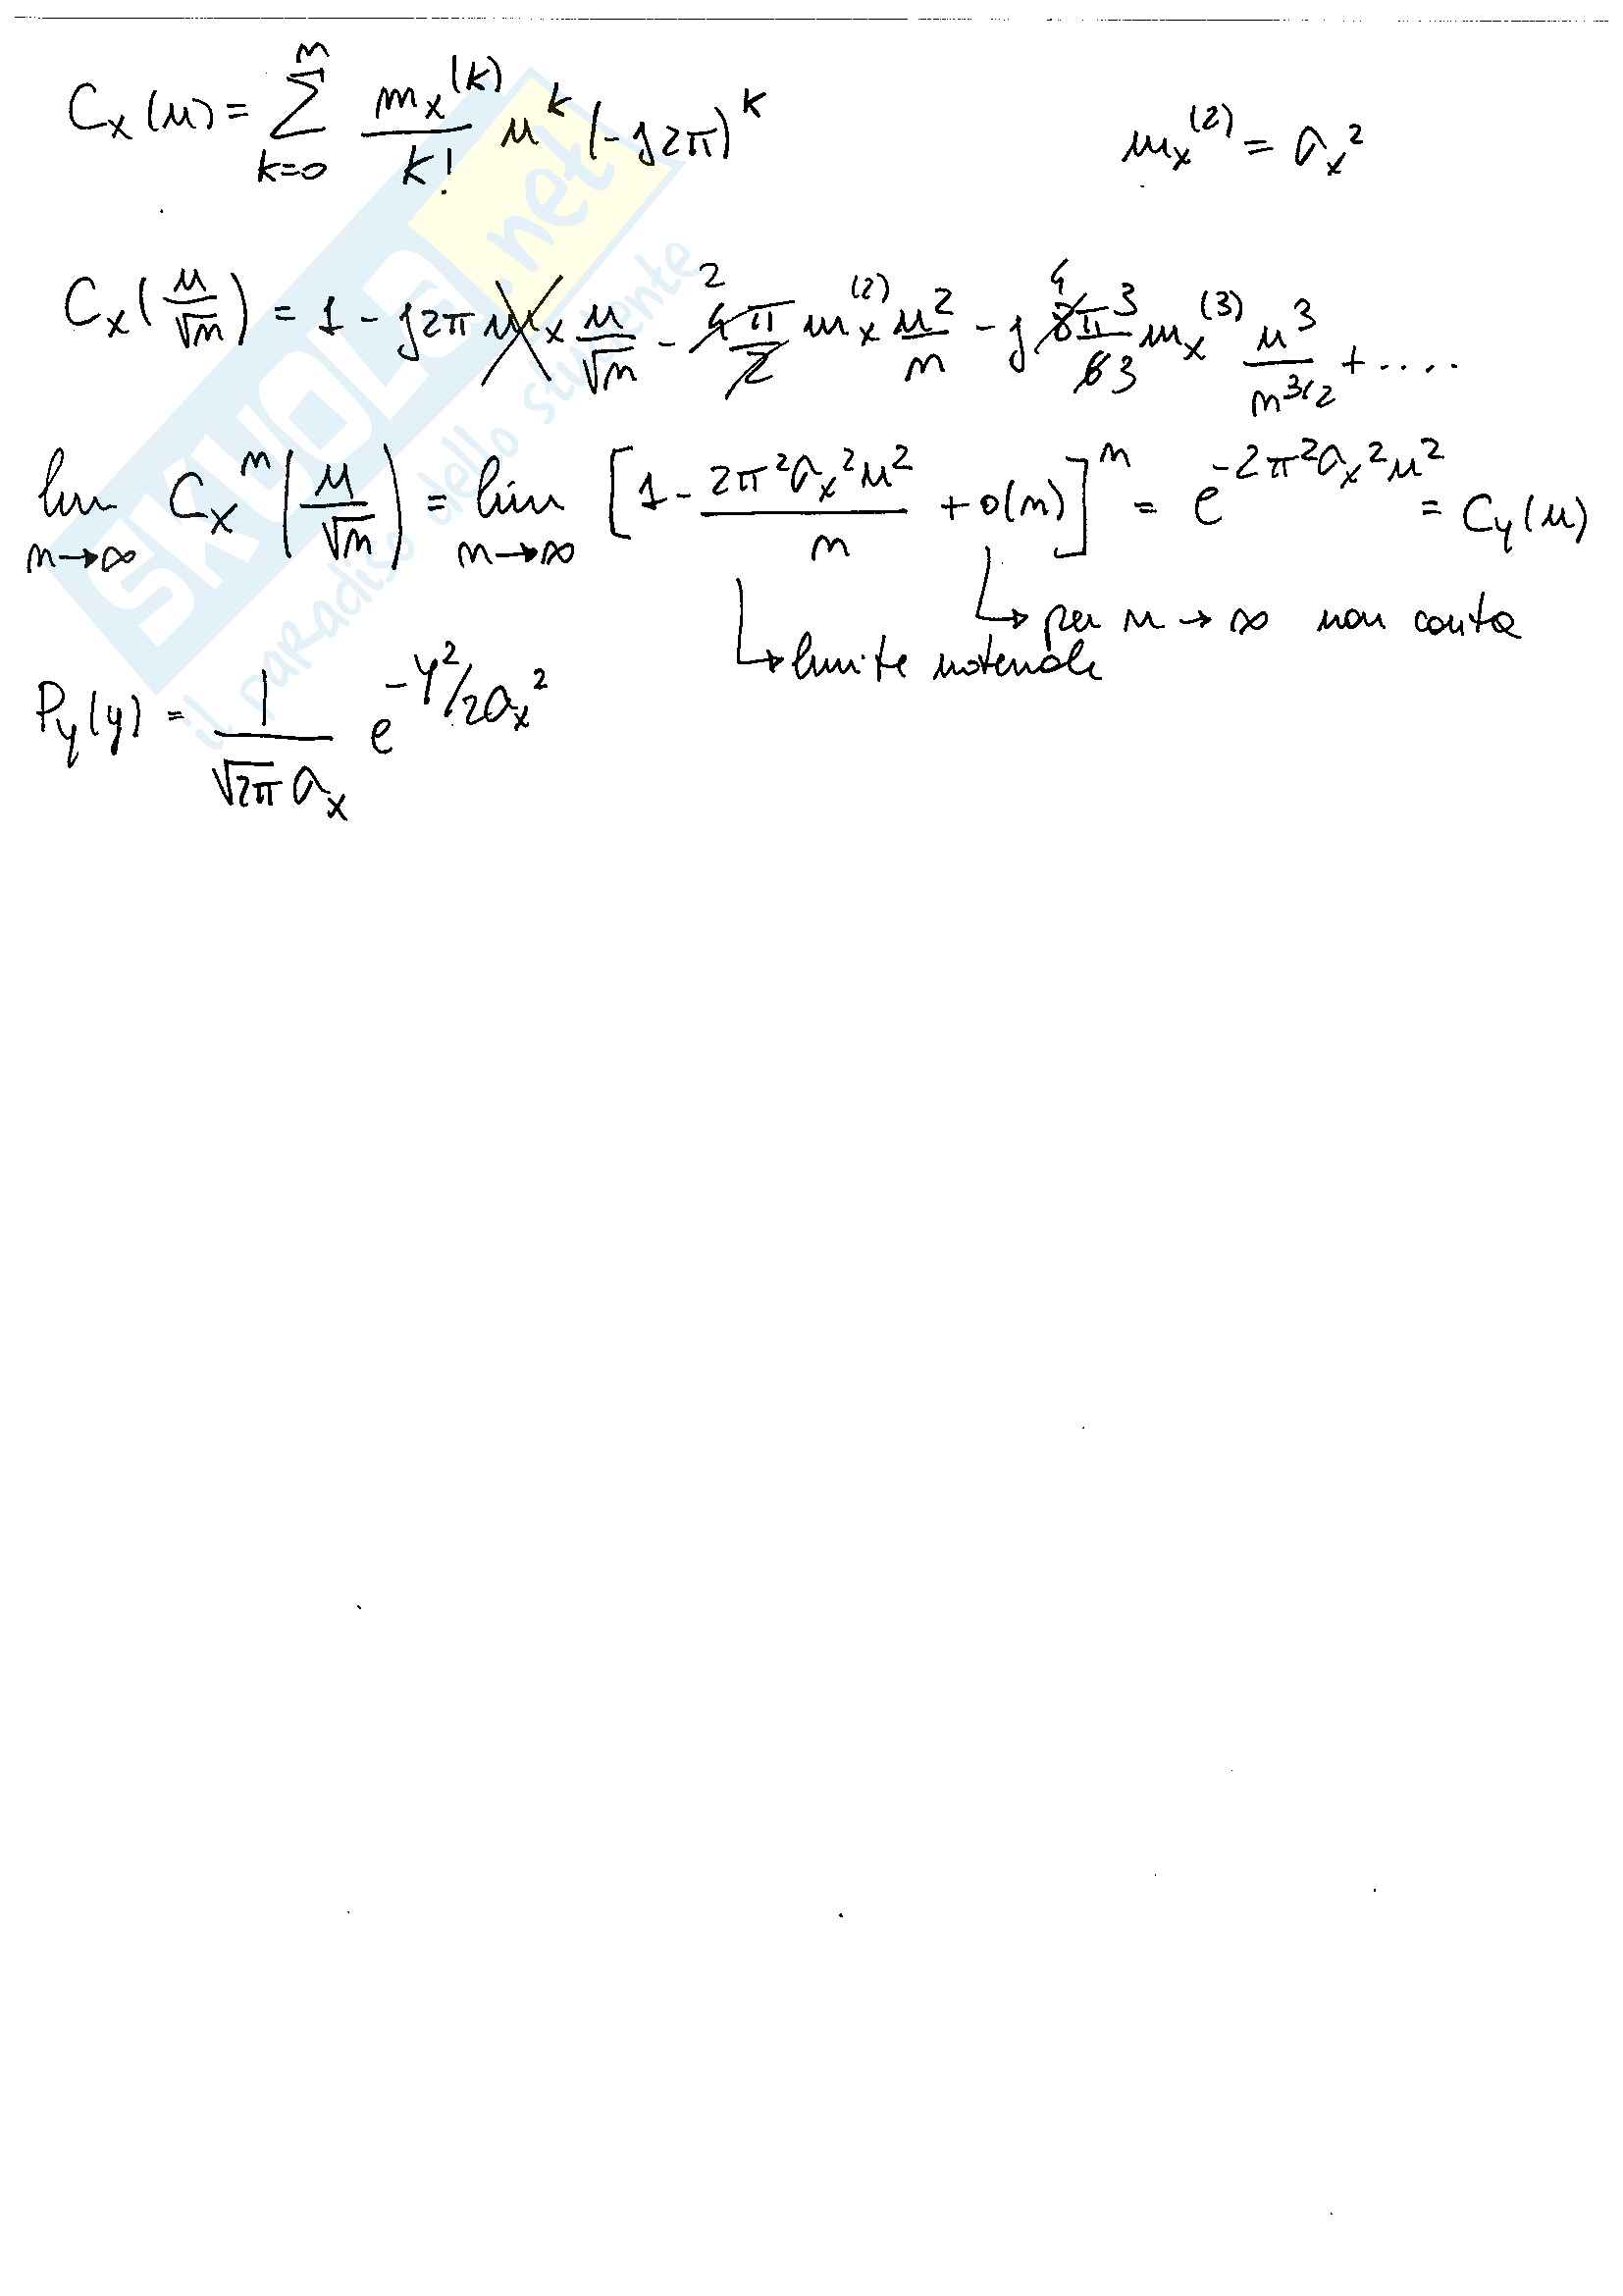 C_x(u) = \sum_{k=0}^{n} \frac{m_x^{(k)}}{k!} u^k (-j2π)^k    m_x^{(2)} = σ_x^2
C_x(\frac{u}{\sqrt{n}}) = 1 - j2π m_x \frac{u}{\sqrt{n}} - 2 \frac{4π}{2} m_x^{(2)} \frac{u^2}{n} - j \frac{4 8π^3}{6 3} m_x^{(3)} \frac{u^3}{n^{3/2}} + ....
lim_{n→∞} C_x^n (\frac{u}{\sqrt{n}}) = lim_{n→∞} [1 - \frac{2π^2σ_x^2u^2}{n} + o(n)]^n = e^{-2π^2σ_x^2u^2} = C_y(u)
↳ per n → ∞ non conta
↳ limite notevole
P_y(y) = \frac{1}{\sqrt{2π} σ_x} e^{-y^2/2σ_x^2}
SKUOLA.net
il paradiso dello studente